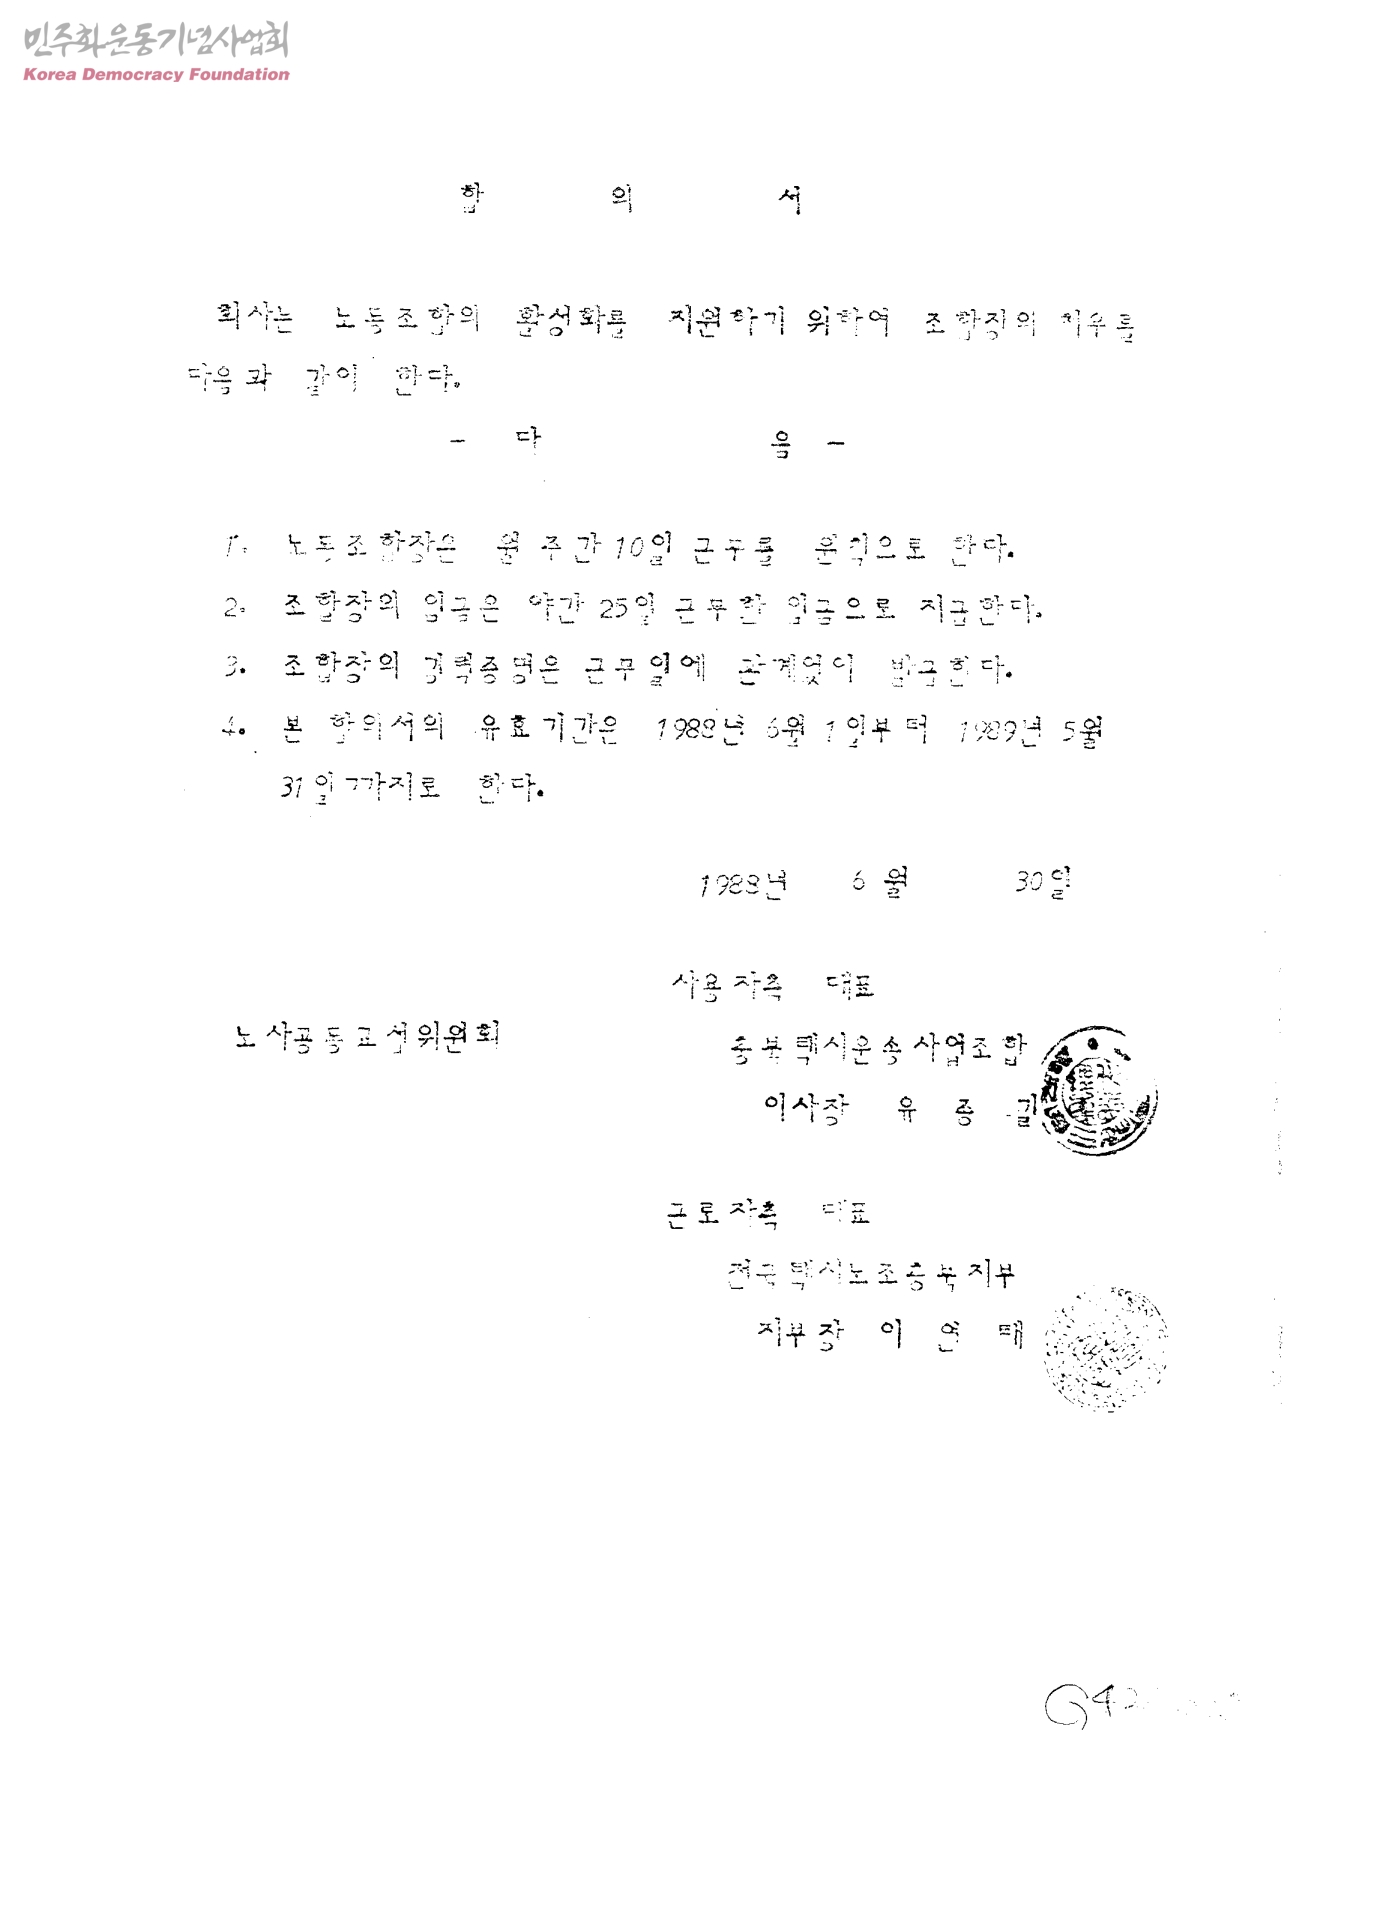 민주화운동기념사업회
Korea Democracy Foundation
합 의 서
회사는 노동조합의 활성화를 지원하기 위하여 조합장의 처우를
다음과 같이 한다.
- 다 음 -
1. 노동조합장은 월 주간 10일 근무를 원칙으로 한다.
2. 조합장의 임금은 야간 25일 근무한 임금으로 지급한다.
3. 조합장의 경력증명은 근무일에 관계없이 발급한다.
4. 본 합의서의 유효기간은 1988년 6월 1일부터 1989년 5월
31일까지로 한다.
1988년 6월 30일
사용자측 대표
노사공동교섭위원회
충북택시운송사업조합
이사장 유 종 길
근로자측 대표
전국택시노조충북지부
지부장 이 연 태